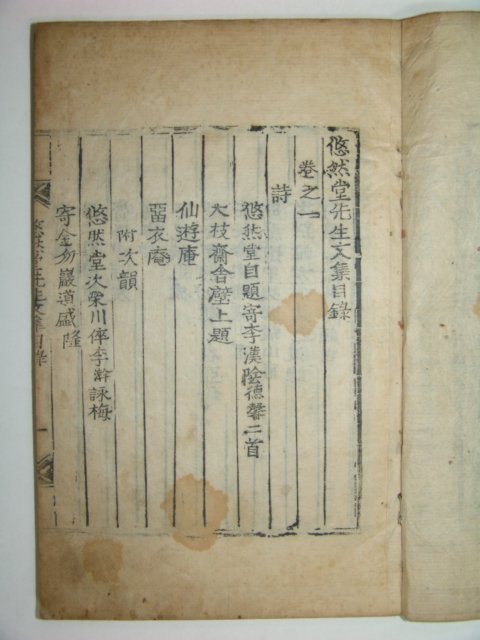 悠然堂先生文集目錄
卷之一
詩
悠然堂自題寄李漢陰德馨二首
大枝齋舍壁上題
仙遊庵
留衣庵
附次韻
悠然堂次榮川倅李澣詠梅
寄金勿巖道盛隆
悠然堂先生文集目錄 一